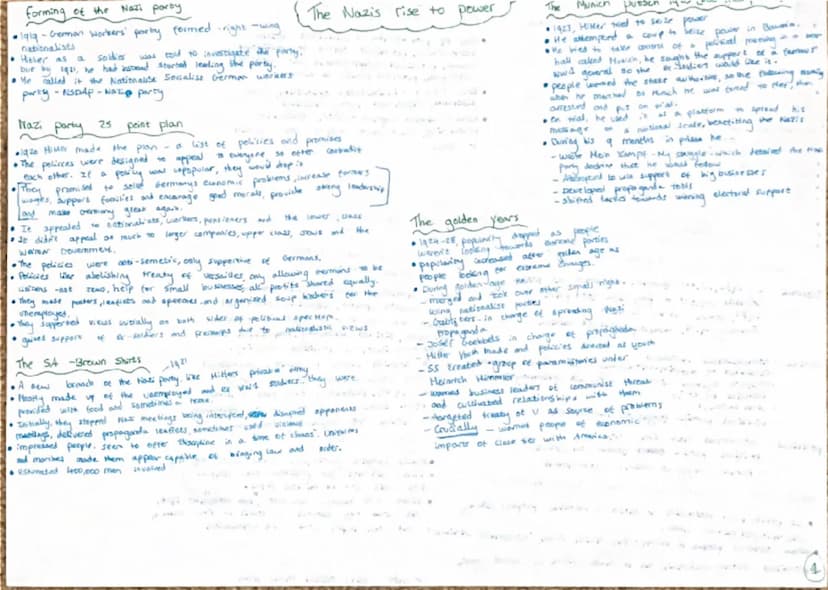 The Nazis rise to power
Forming of the Nazi party
• 1919 - German Workers' party formed - right-wing
nationalists
• Hitler as a soldier was told to investigate the party,
but by 1921, he had started leading the party.
• He called it the Nationalist Socialist German workers
party - NSDAP - Nazi party
Nazi party 25 point plan
• 1920 Hitler made the plan - a list of policies and promises
• The policies were designed to appeal to everyone so often contradict
each other. If a policy was unpopular, they would drop it
• They promised to solve Germanys economic problems, increase farmers
wages, support families and encourage good morals, provide strong leadership
and make Germany great again.
• It appealed to nationalists, workers, pensioners and the lower class
• It didn't appeal as much to larger companies, upper class, Jews and the
Weimar Government.
• The policies were anti-semetic, only supportive of Germans.
• Policies like abolishing treaty of Versailles, only allowing Germans to be
citizens - not Jews, help for small businesses, all profits shared equally.
• They made posters, leaflets and speeches and organised soup kitchens for the
unemployed.
• They supported views on both sides of political spectrum.
• gained support of ex-soldiers and due to nationalistic views
The SA - Brown Shirts
1921
• A new branch of the Nazi party like Hitlers private army
• Mostly made up of the unemployed and ex WW1 soldiers. They were
provided with food and sometimes a home.
• Initially, they stopped Nazi meetings being interrupted, disrupted opponents
meetings, delivered propaganda leaflets, sometimes used violence
• impressed people, seen to offer 'discipline in a time of chaos'. Uniforms
and marches made them appear capable of bringing law and order.
• estimated 400,000 men involved
The Munich putsch
• 1923, Hitler tried to seize power
• He attempted a coup to seize power in Bavaria.
• He tried to take control of a political meeting in a beer
hall called Munich, he sought the support of a famous
WW1 general so the ex soldiers would like it.
• people warned the state authorities, so the following
when he marched to Munich he was forced to flee, then
arrested and put on trial.
• On trial, he used it as a platform to spread his
message on a national scale, benefitting the Nazis
• During his 9 months in prison he...
- Wrote Mein Kampf - My struggle - which detailed the main
party doctrine that he would follow
- Attempted to win support of big businesses
- Developed propaganda tools
- shifted tactics towards winning electoral support
The golden years
• 1924-28, popularity dropped as people
weren't looking towards extreme parties
• popularity increased after golden age as
people looking for extreme changes.
• During golden age
- merged and took over other small right-
wing nationalist parties
- in charge of spreading Nazi
propaganda
- Josef Goebbels in charge of propaganda
- Hitler Youth made and policies aimed at youth
- SS created - group of paramilitaries under
Heinrich Himmler
- warned business leaders of communist threat
and cultivated relationships with them
- targeted treaty of V as source of problems
- Crucially - warned people of economic
impacts of close ties with America.
1